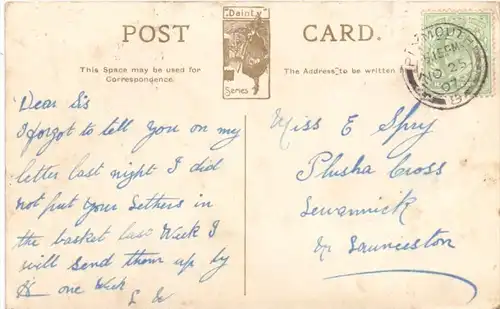 POST CARD.
"Dainty"
Series
This Space may be used for
Correspondence.
The Address to be written
Dear Sis
I forgot to tell you on my
letter last night I did
not put your Letters in
the basket last Week I
will Send them up by
one Week
Miss E Spry
Plusha Cross
Lewannick
Nr Launceston
PLYMOUTH
25
07